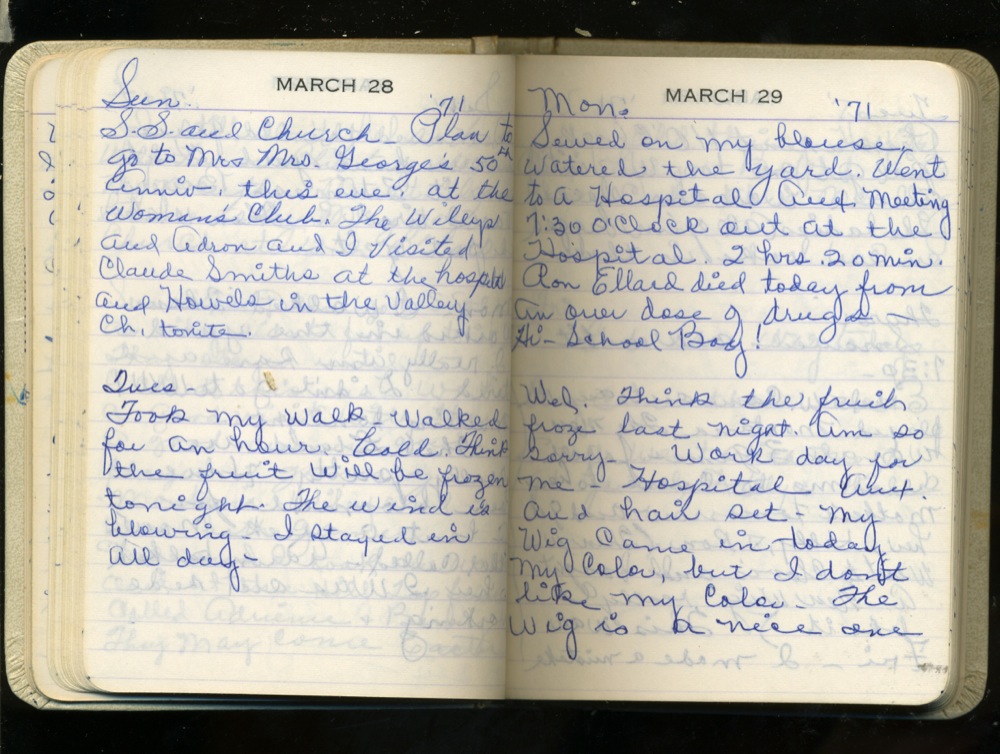 MARCH 28
Sun. '71
S.S. and Church - Plan to
go to Mrs Mrs. George's 50th
Anniv. this eve. at the
Woman's Club. The Wileys
and Adron and I Visited
Claude Smiths at the hospital
and Howels in the Valley
Ch. tonite.
Tues -
Took my walk - Walked
for an hour. Cold. Think
the fruit will be frozen
tonight. The wind is
blowing - I stayed in
all day -
MARCH 29
Mon. '71
Sewed on my blouse,
watered the yard. Went
to a Hospital Aux Meeting
7:30 O'Clock out at the
Hospital. 2 hrs. 20 min.
Ron Ellard died today from
an over dose of drugs -
Hi-School Boy!
Wed. Think the fruit
froze last night. Am so
sorry - Work day for
me - Hospital Aux.
and hair set - My
Wig Came in today
my Color, but I don't
like my Color - The
Wig is a nice one